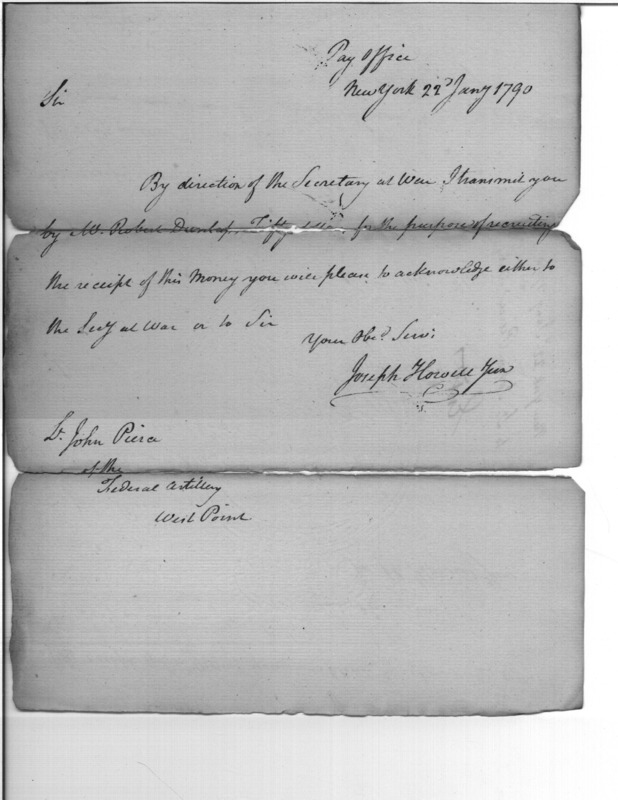 Pay Office
New York 22d Jany 1790
Sir
By direction of the Secretary at War I transmit you
by Mr. Robert Dunlap, Fifty for the purpose of recruiting
the receipt of this Money you will please to acknowledge either to
the Secy at War or to Sir
Your Obt. Servt
Joseph Howell Jun
Lt. John Pierce
of the
Federal Artillery
West Point